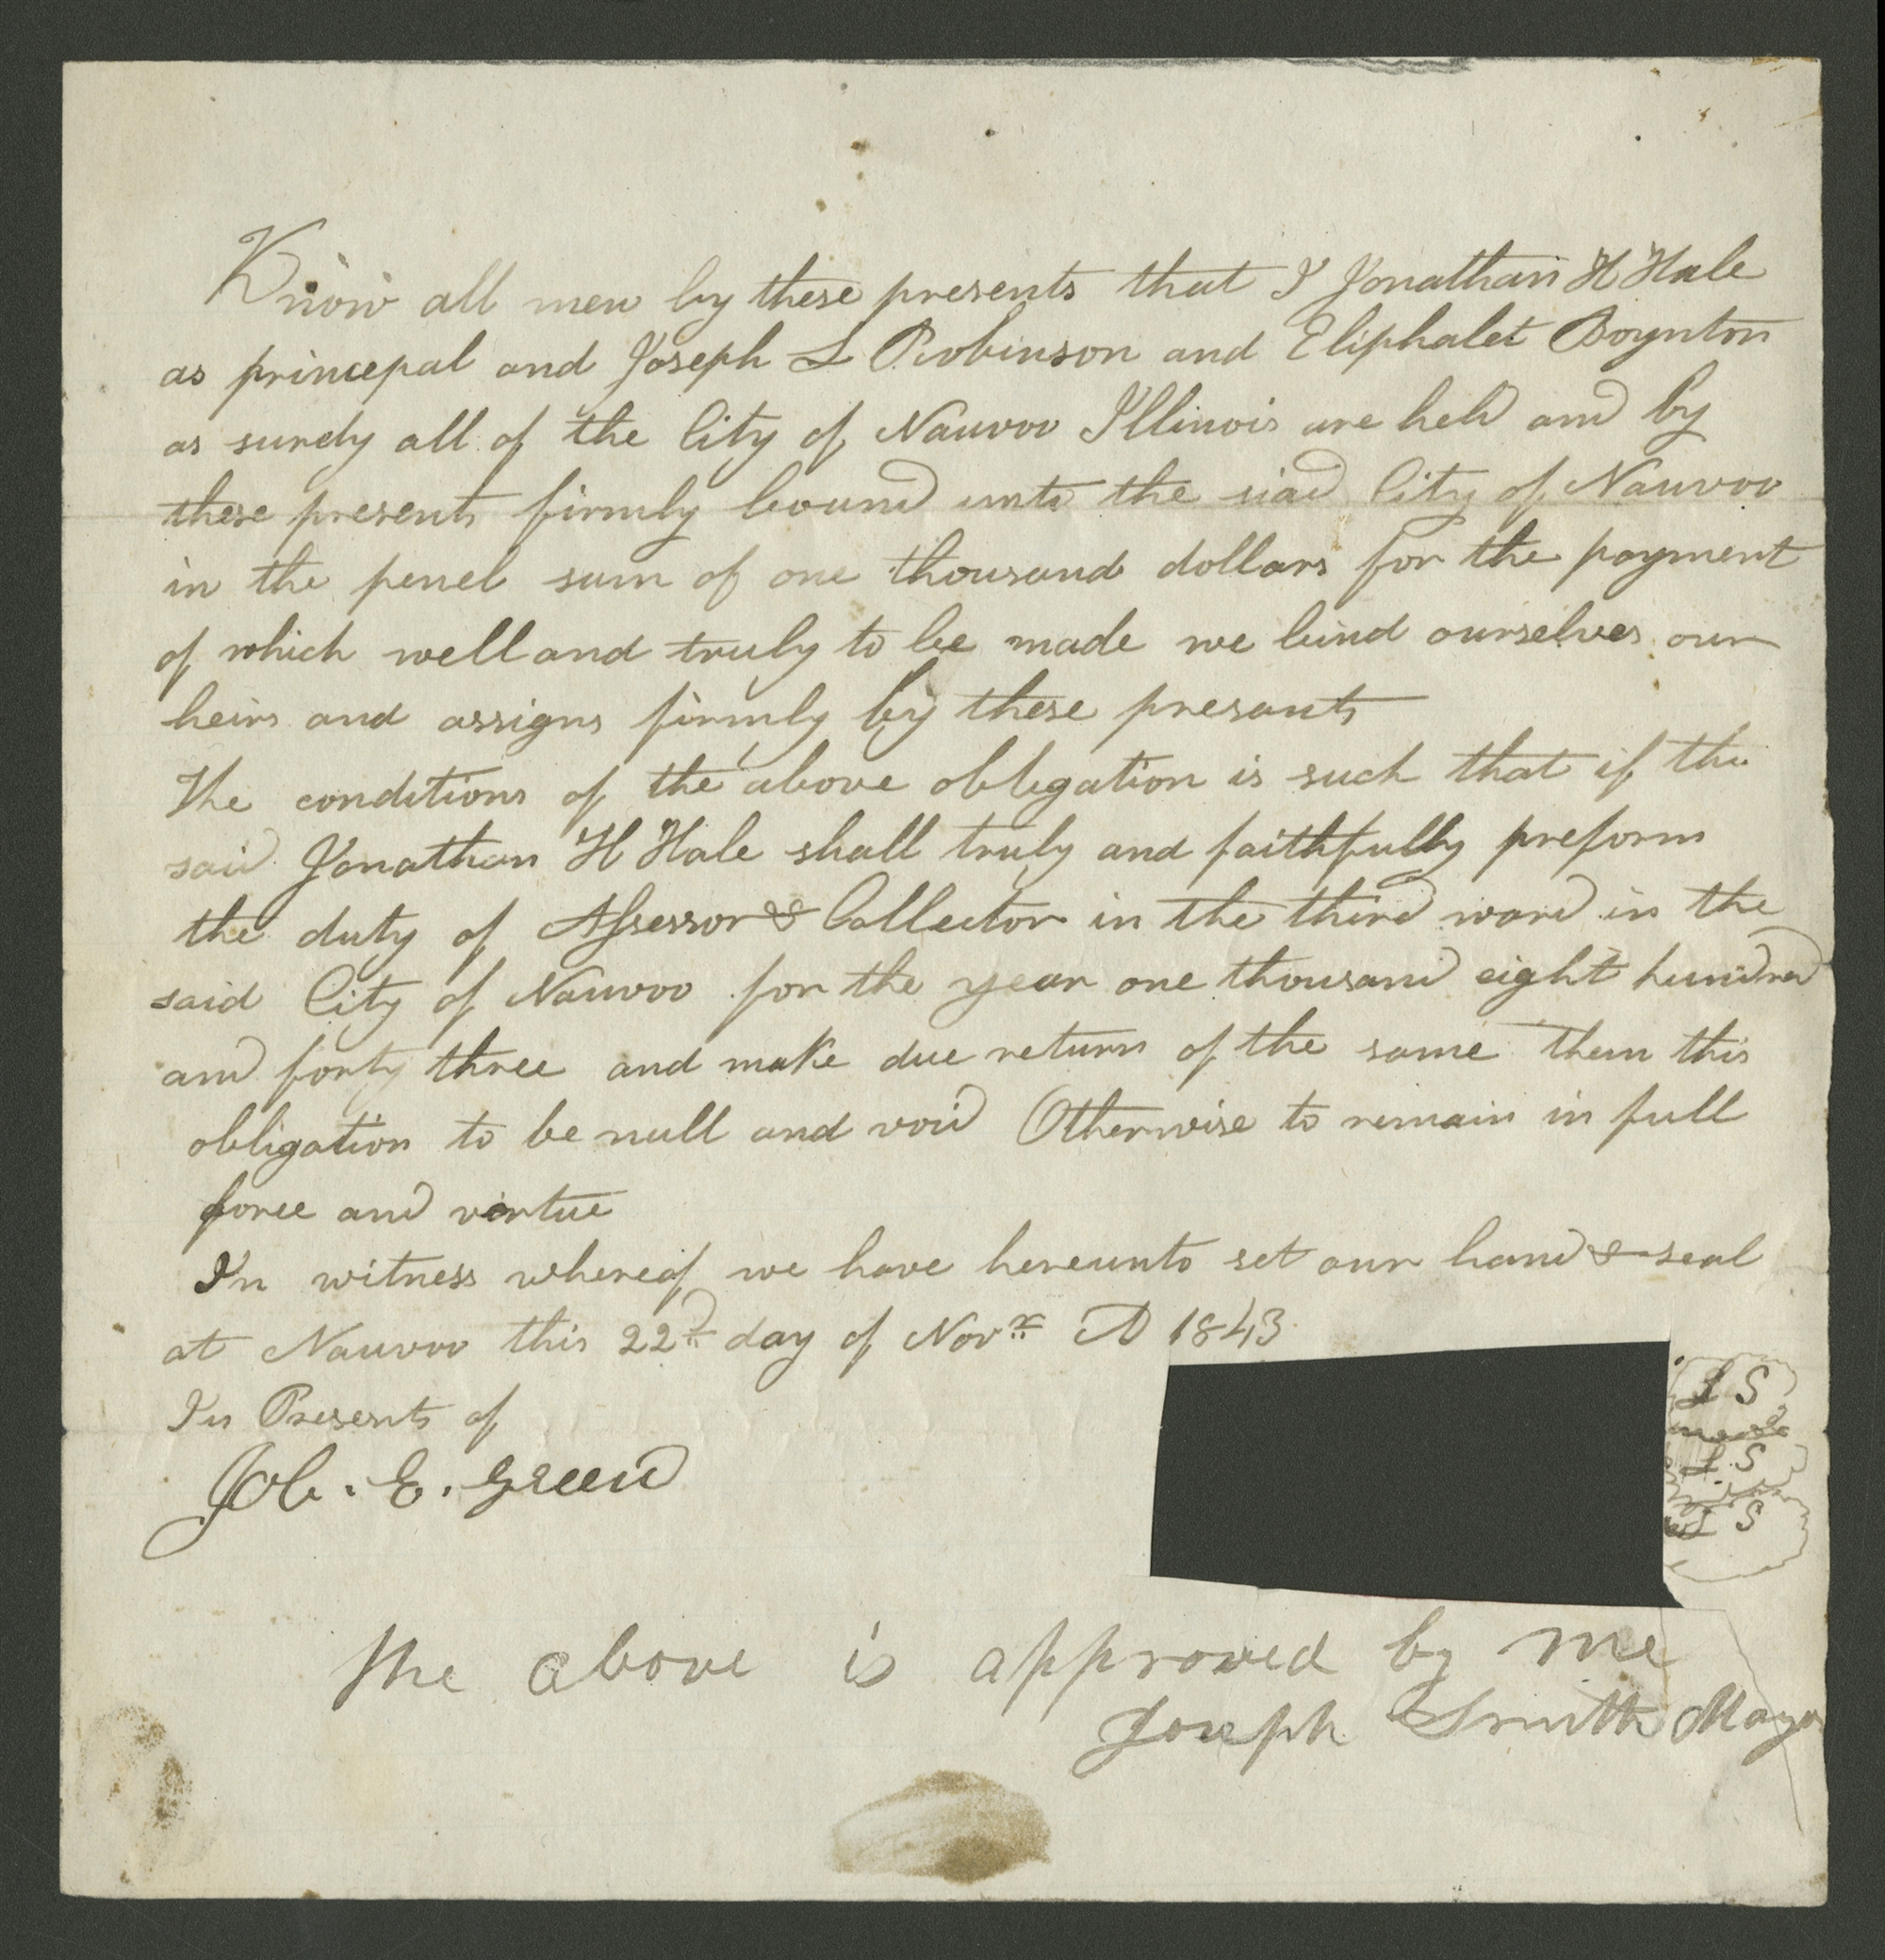 Know all men by these presents that I Jonathan H Hale
as princepal and Joseph L Robinson and Eliphalet Boynton
as surety all of the City of Nauvoo Illinois are held and by
these presents firmly bound unto the siad City of Nauvoo
in the penel sum of one thousand dollars for the payment
of which well and truly to be made we bind ourselves our
heirs and assigns firmly by these presants
The conditions of the above obligation is such that if the
said Jonathan H Hale shall truly and faithfully preform
the duty of Assessor & Collector in the third ward in the
said City of Nauvoo for the year one thousand eight hundred
and forty three and make due return of the same then this
obligation to be null and void Otherwise to remain in full
force and virtue
In witness whereof we have hereunto set our hand & seal
at Nauvoo this 22d day of Novr AD 1843
In Presents of
Job. E. Green
L S
L S
L S
The above is approved by me
Joseph Smith Mayor